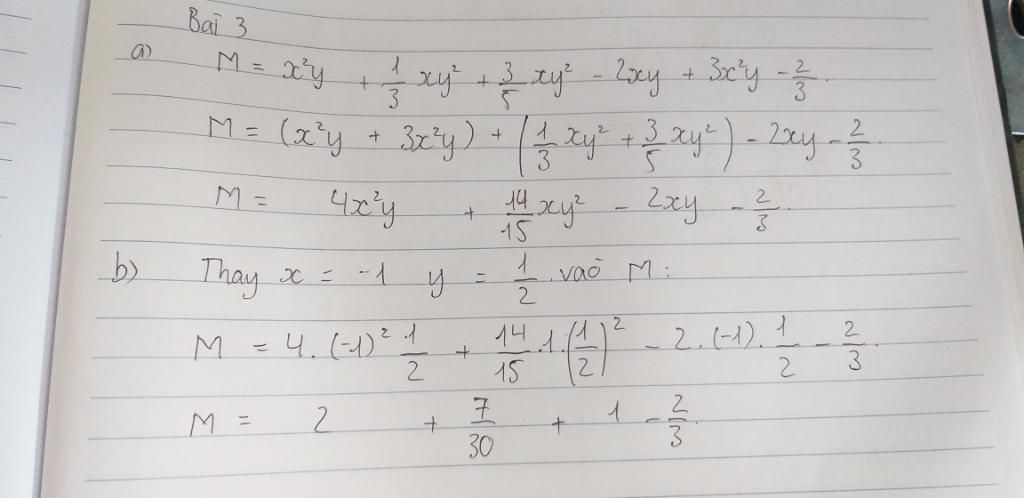 Bài 3
a) M = x²y + 1/3 xy² + 3/5 xy² - 2xy + 3x²y - 2/3.
M = (x²y + 3x²y) + (1/3 xy² + 3/5 xy²) - 2xy - 2/3.
M = 4x²y + 14/15 xy² - 2xy - 2/3.
b) Thay x = -1 y = 1/2 vào M:
M = 4. (-1)² 1/2 + 14/15 .1. (1/2)² - 2. (-1). 1/2 - 2/3.
M = 2 + 7/30 + 1 - 2/3.